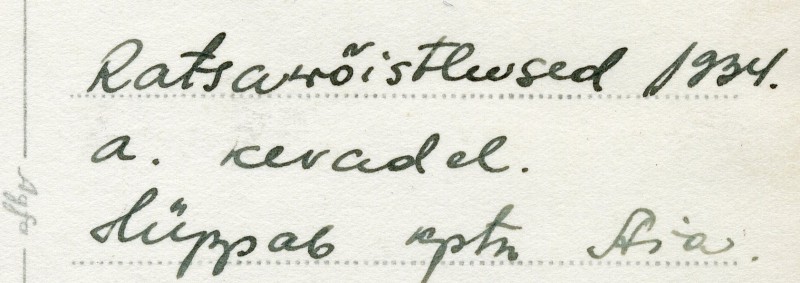 Ratsawõistlused 1934.
a. kevadel.
Hüppab kptn Aia.
Agfa